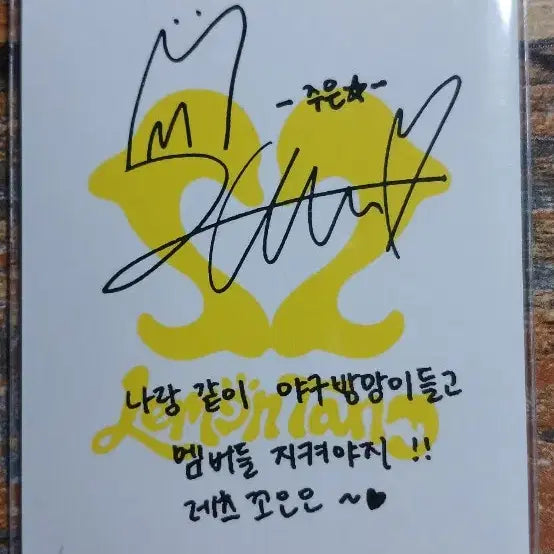 - 주은☆-
Lemon Tang
나랑 같이 야구방망이들고
멤버들 지켜야지 !!
레츠 꼬은은 ~♥